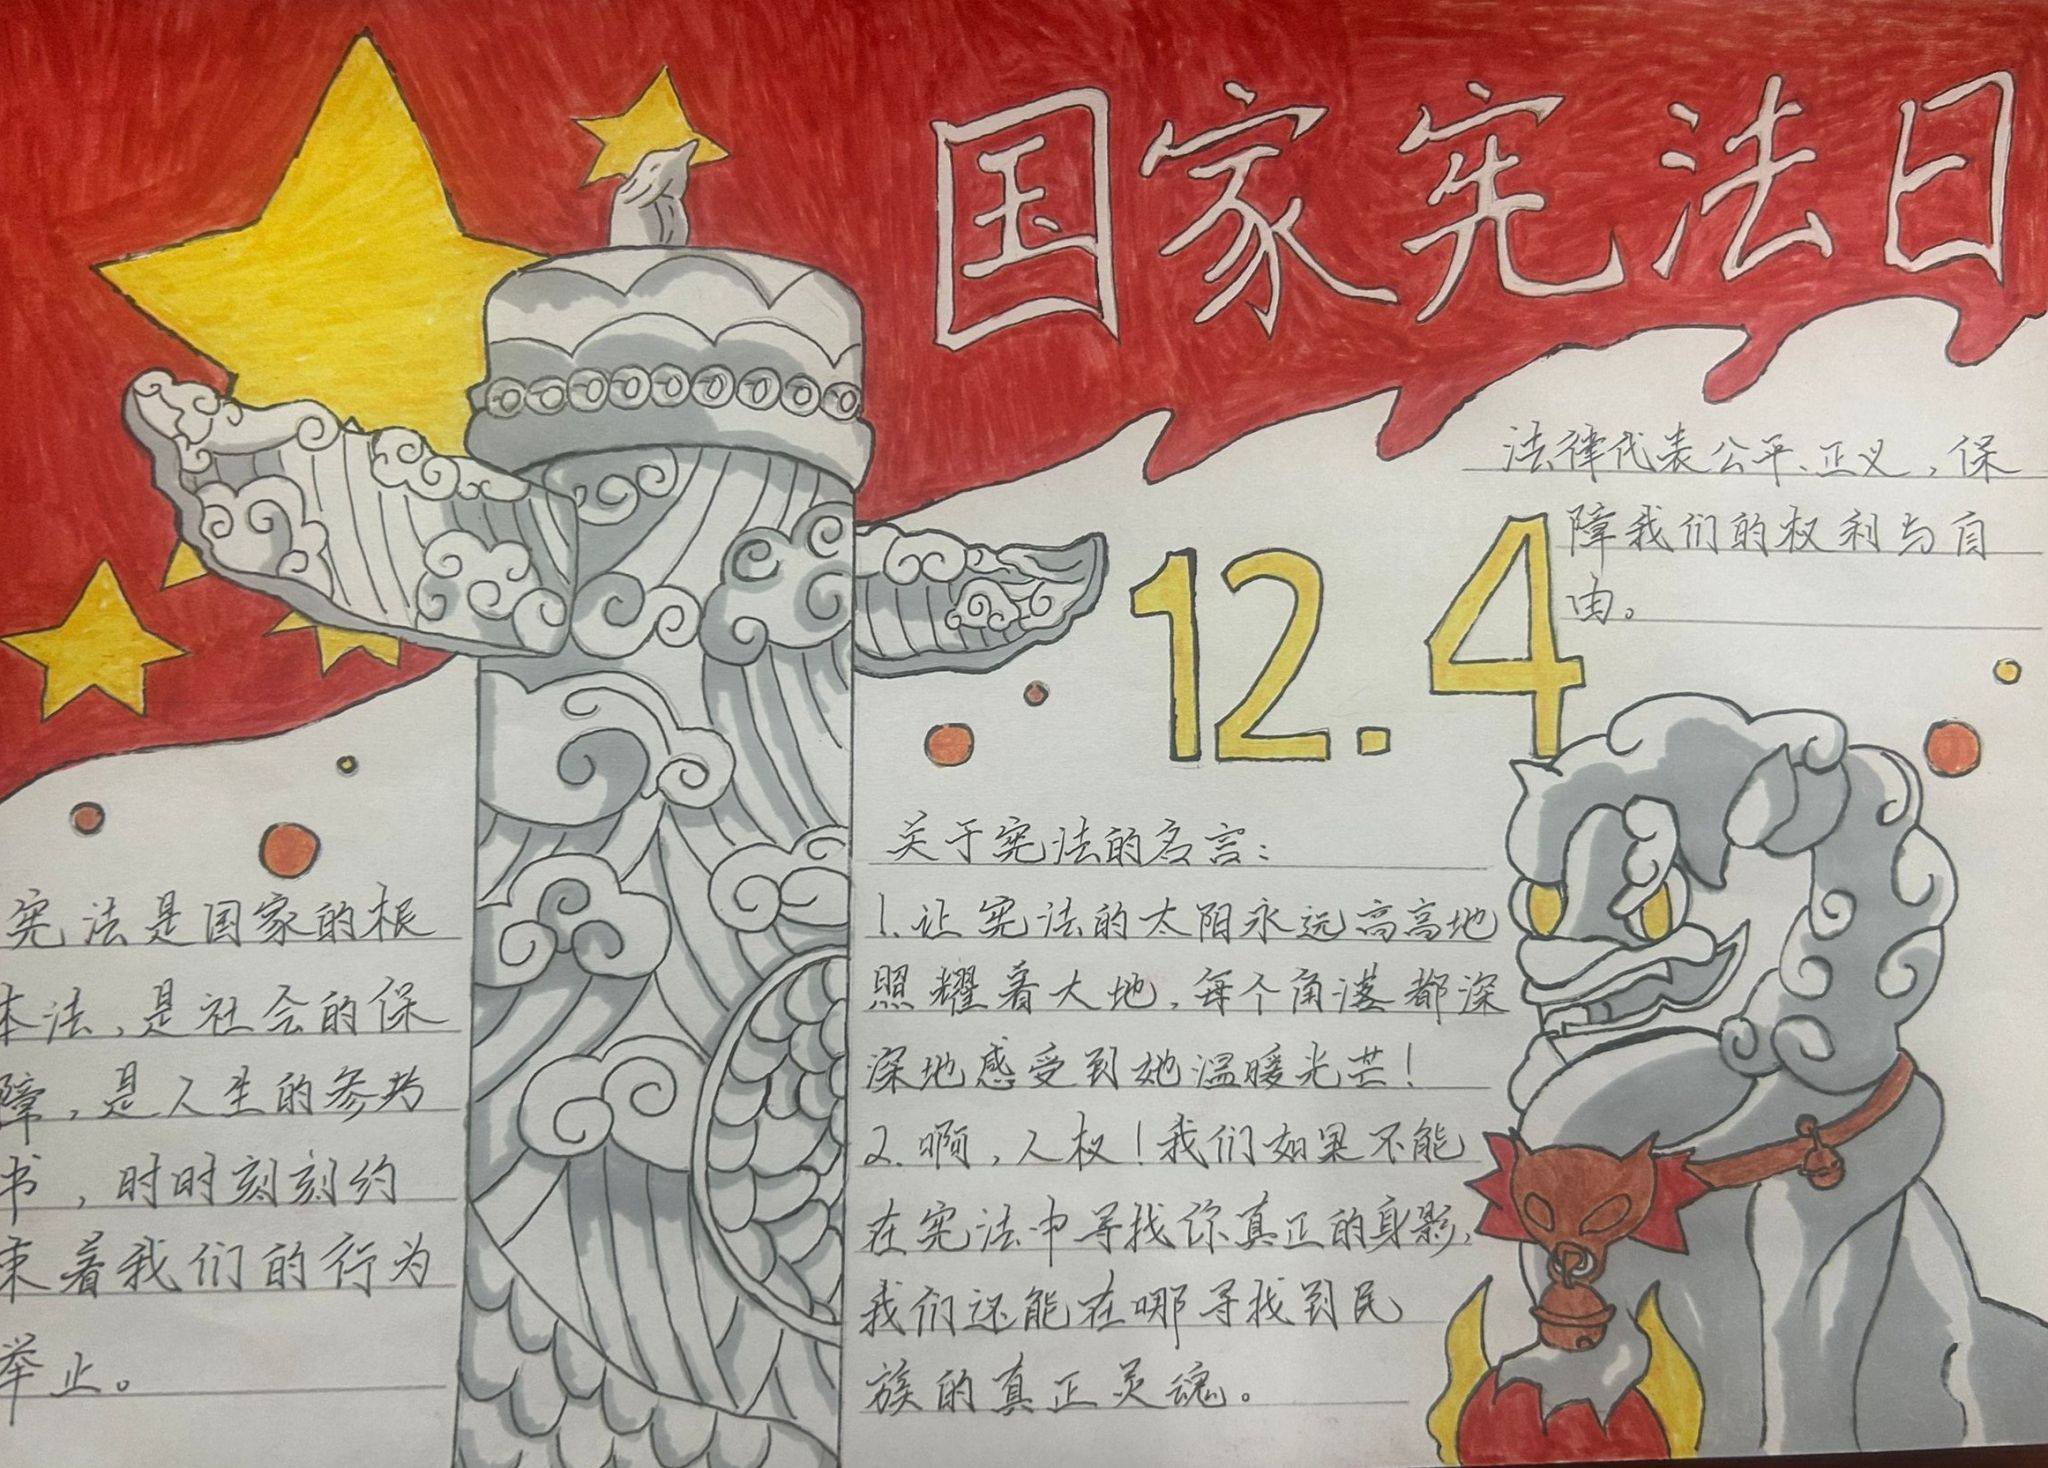 国家宪法日
12.4
法律代表公平、正义，保
障我们的权利与自
由。
宪法是国家的根
本法，是社会的保
障，是人生的参考
书，时时刻刻约
束着我们的行为
举止。
关于宪法的名言：
1.让宪法的太阳永远高高地
照耀着大地，每个角落都深
深地感受到她温暖光芒！
2.啊，人权！我们如果不能
在宪法中寻找你真正的身影，
我们还能在哪寻找到民
族的真正灵魂。